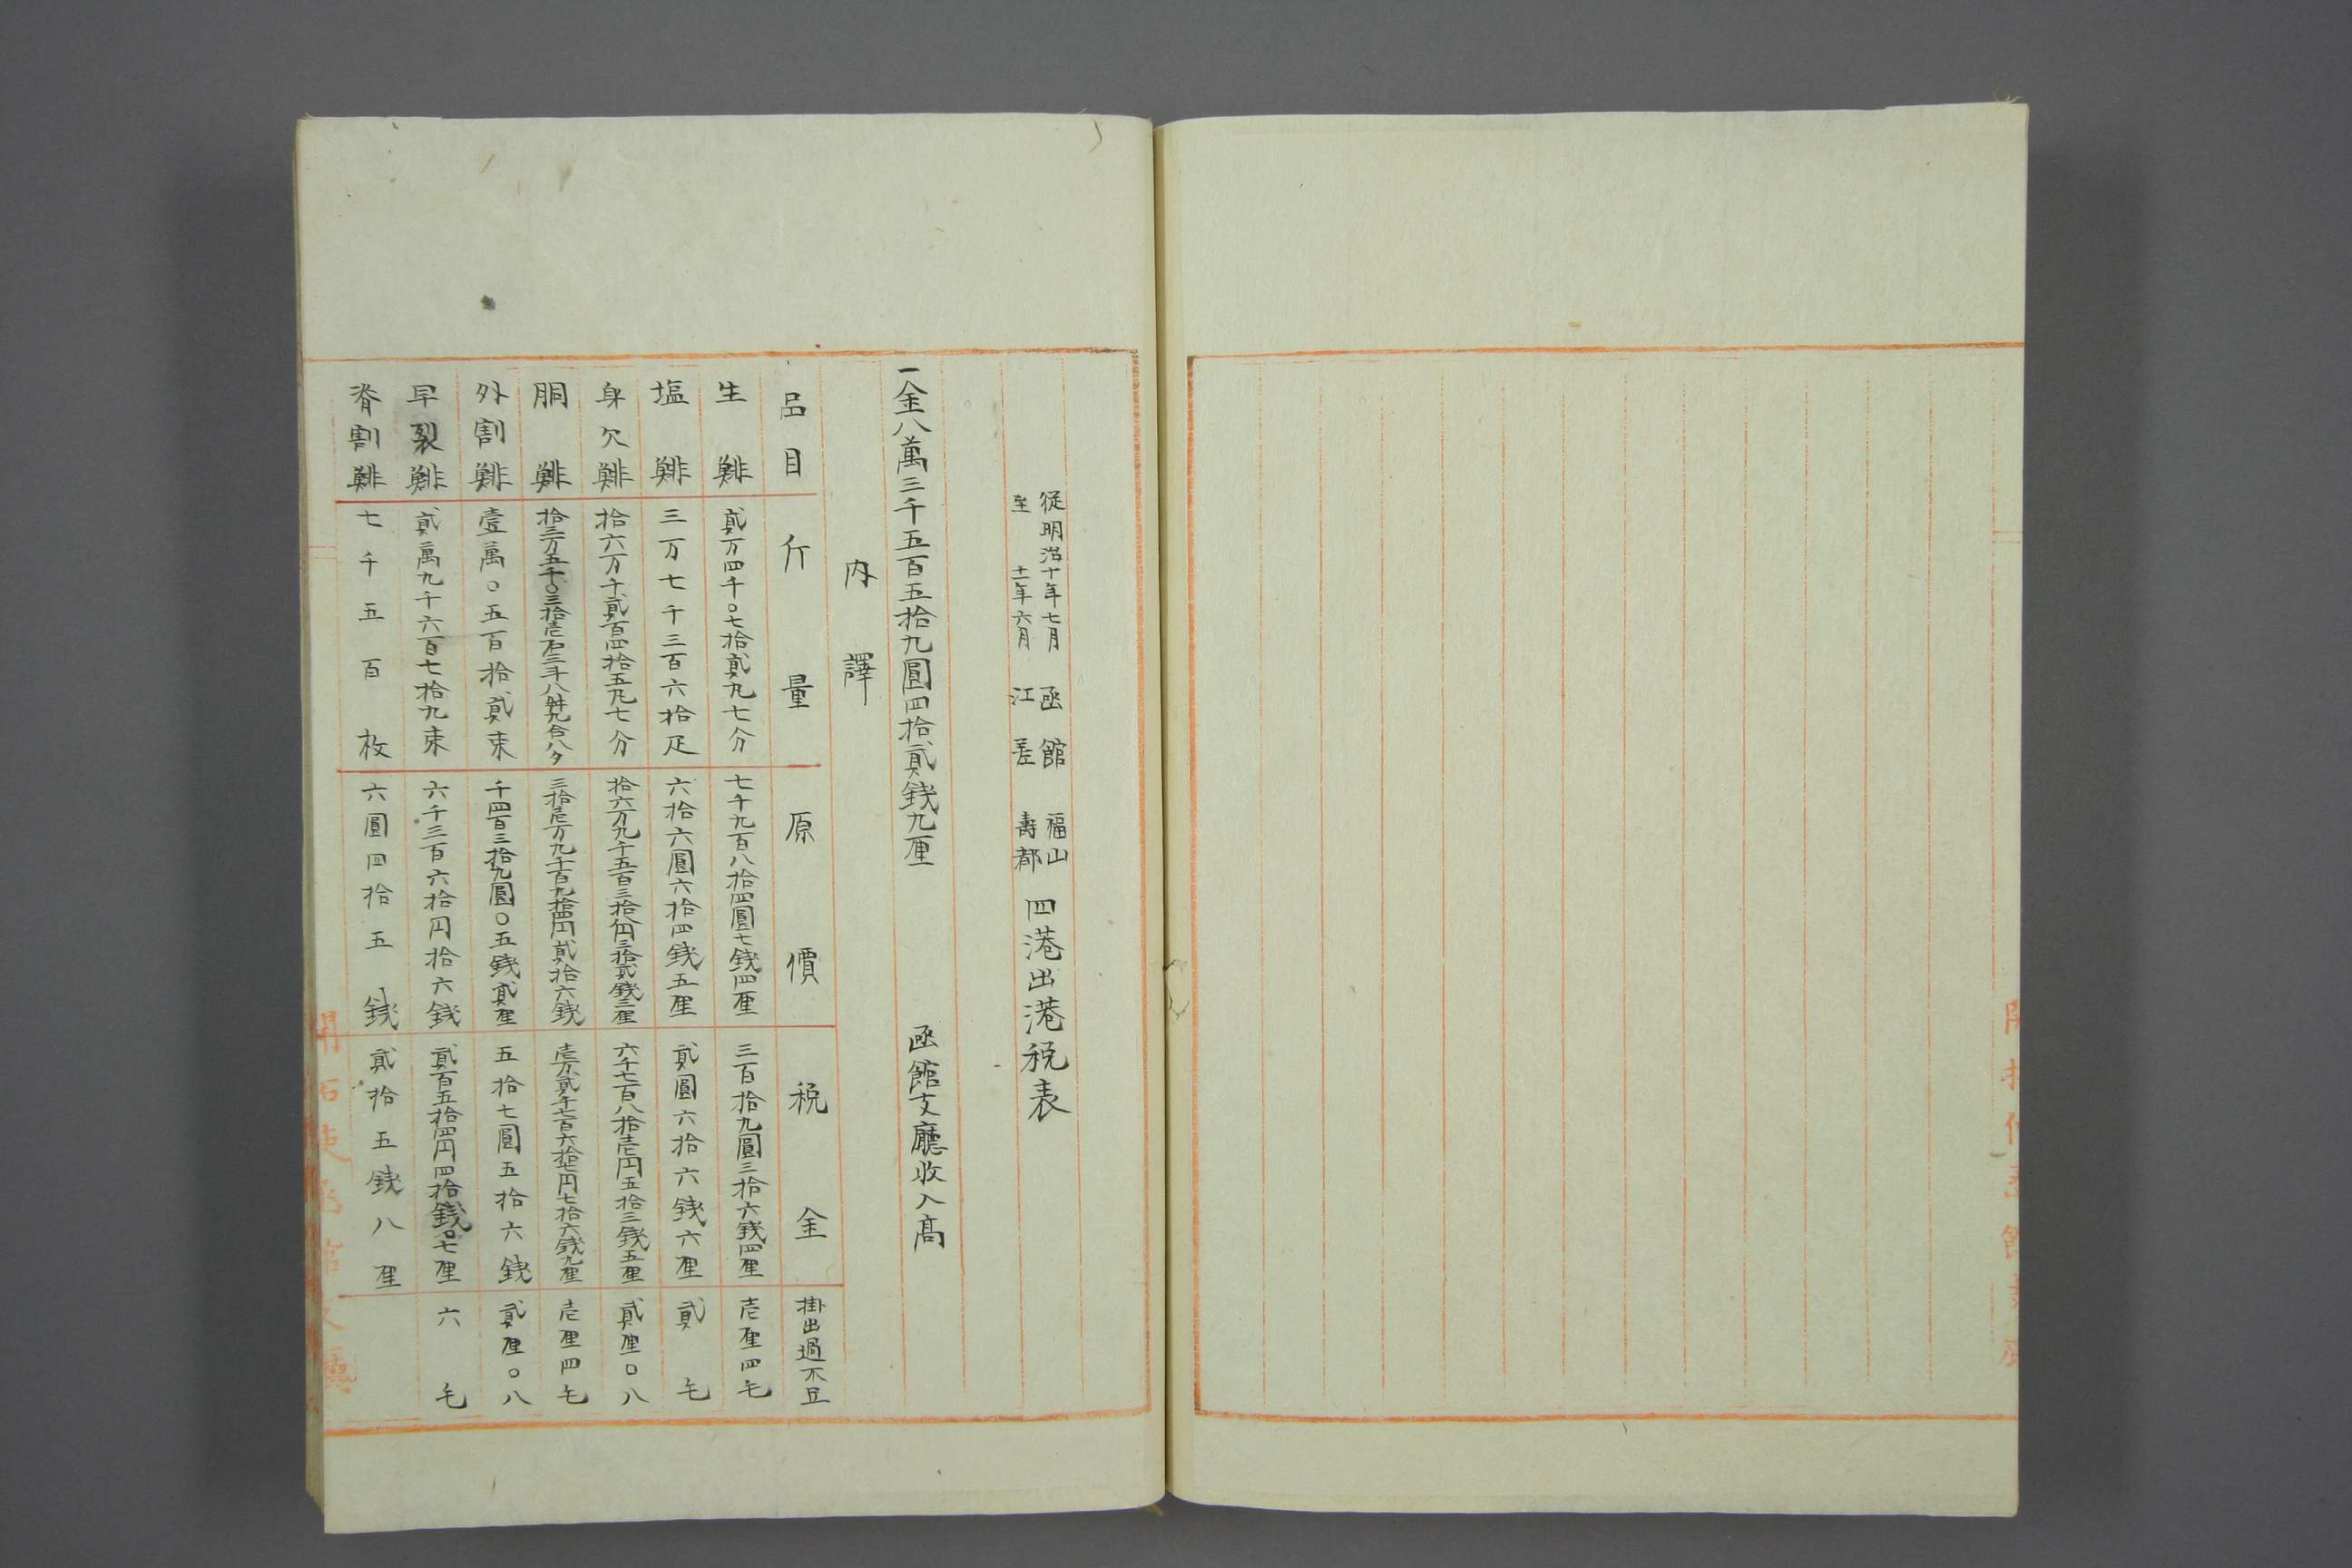 從明治十年七月
至　　十一年六月
函館　福山
江差　壽都
四港出港税表
一金八萬三千五百五拾九圓四拾貳銭九厘　函館支廳收入髙
内譯
品目　斤量　原價　税金　掛出過不足
生鯡　貳万四千〇七拾貳丸七分　七千九百八拾四圓七銭四厘　三百拾九圓三拾六銭四厘　壱厘四毛
塩鯡　三万七千三百六拾疋　六拾六圓六拾四銭五厘　貳圓六拾六銭六厘　貳毛
身欠鯡　拾六万千貳百四拾五丸七分　拾六万九千五百三拾八円三拾貳銭三厘　六千七百八拾壱円五拾三銭五厘　貳厘〇八
胴鯡　拾三万五千〇三拾壱石三斗八舛九合八夕　三拾壱万九千百九拾四円貳拾六銭　壱万貳千七百六拾七円七拾六銭九厘　壱厘四毛
外割鯡　壹萬〇五百拾貳束　千四百三拾九圓〇五銭貳厘　五拾七圓五拾六銭　貳厘〇八
早裂鯡　貳萬九千六百七拾九束　六千三百六拾円拾六銭　貳百五拾四円四拾銭〇七厘　六毛
脊割鯡　七千五百枚　六圓四拾五銭　貳拾五銭八厘
開拓使函館支廳